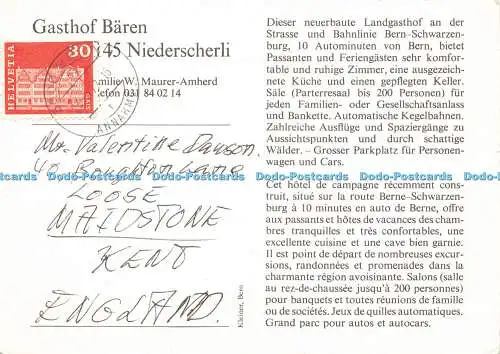 Gasthof Bären
3145 Niederscherli
Familie W. Maurer-Amherd
Telefon 031 84 02 14
HELVETIA
30
GAIS
ANNAHME
Mr. Valentine Dawson.
40
Lane
LOOSE
MAIDSTONE
KENT
ENGLAND.
Kleiner, Bern
Dieser neuerbaute Landgasthof an
der Strasse und Bahnlinie Bern-Schwarzen-
burg, 10 Autominuten von Bern, bietet
Passanten und Feriengästen sehr komforta-
ble und ruhige Zimmer, eine ausgezeich-
nete Küche und einen gepflegten Keller.
Säle (Parterresaal bis 200 Personen) für
jeden Familien- oder Gesellschaftsanlass
und Bankette. Automatische Kegelbahnen.
Zahlreiche Ausflüge und Spaziergänge zu
Aussichtspunkten und durch schattige
Wälder. – Grosser Parkplatz für Personen-
wagen und Cars.
Cet hôtel de campagne récemment cons-
truit, situé sur la route Berne-Schwarzen-
burg à 10 minutes en auto de Berne, offre
aux passants et hôtes de vacances des cham-
bres tranquilles et très confortables, une
excellente cuisine et une cave bien garnie.
Il est point de départ de nombreuses excur-
sions, randonnées et promenades dans la
charmante région avoisinante. Salons (salle
au rez-de-chaussée jusqu'à 200 personnes)
pour banquets et toutes réunions de famille
ou de sociétés. Jeux de quilles automatiques.
Grand parc pour autos et autocars.
Dodo-Postcards Dodo-Postcards Dodo-Postcards Dodo-Postcards Dodo-Postcards Dodo-Postcards